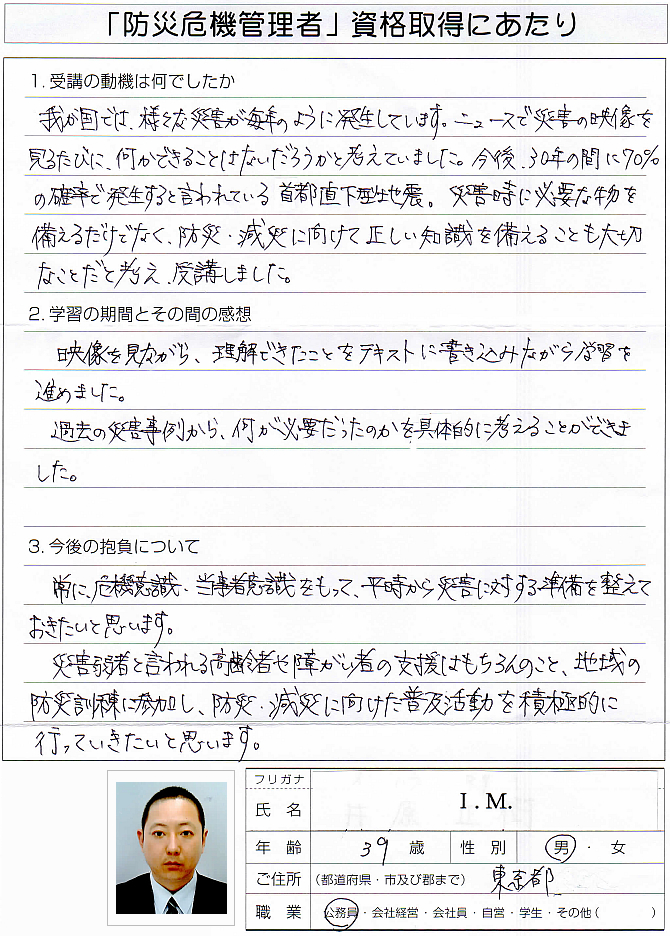 「防災危機管理者」資格取得にあたり
1. 受講の動機は何でしたか
我が国では、様々な災害が毎年のように発生しています。ニュースで災害の映像を
見るたびに、何かできることはないだろうかと考えていました。今後、30年の間に70%
の確率で発生すると言われている首都直下型地震。災害時に必要な物を
備えるだけでなく、防災・減災に向けて正しい知識を備えることも大切
なことだと考え、受講しました。
2. 学習の期間とその間の感想
映像を見ながら、理解できたことをテキストに書き込みながら学習を
進めました。
過去の災害事例から、何が必要だったのかを具体的に考えることができま
した。
3. 今後の抱負について
常に、危機意識・当事者意識をもって、平時から災害に対する準備を整えて
おきたいと思います。
災害弱者と言われる高齢者や障がい者の支援はもちろんのこと、地域の
防災訓練に参加し、防災・減災に向けた普及活動を積極的に
行っていきたいと思います。
フリガナ
氏 名 I.M.
年 齢 39 歳 性 別 男・女
ご住所 (都道府県・市及び郡まで) 東京都
職 業 公務員・会社経営・会社員・自営・学生・その他( )